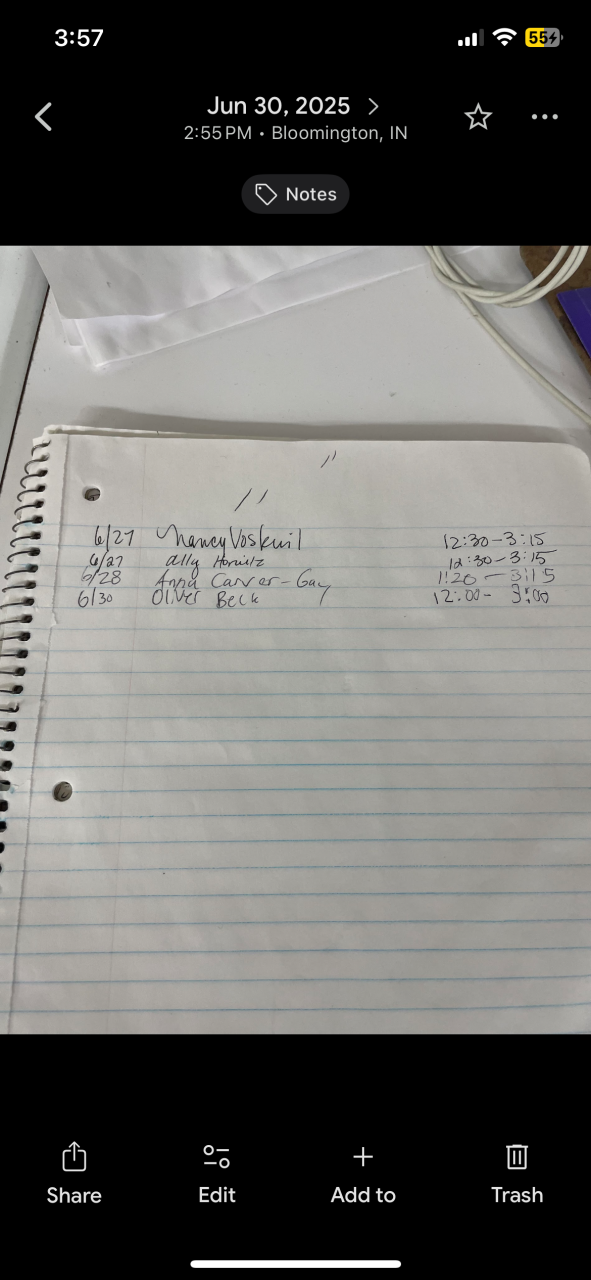 3:57
55
Jun 30, 2025
2:55 PM • Bloomington, IN
Notes
6/27 Nancy Voskuil 12:30-3:15
6/27 Ally Horwitz 12:30-3:15
6/28 Anna Carver-Gay 1:20-3:15
6/30 Oliver Beck 12:00-3:00
Share
Edit
Add to
Trash